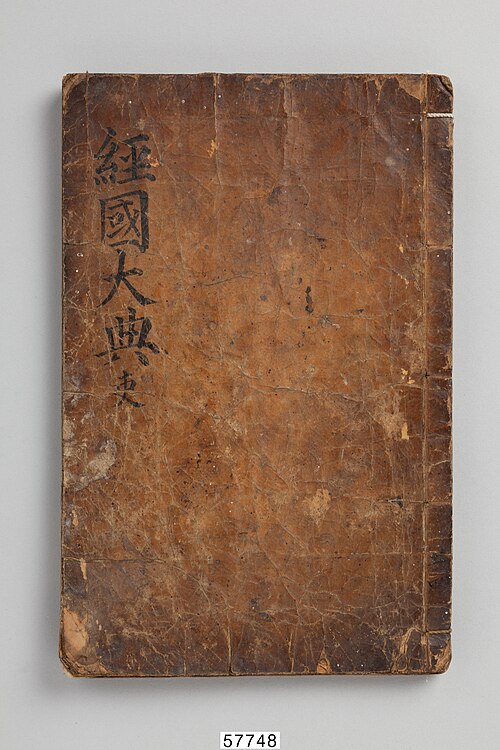 經國大典 吏
57748